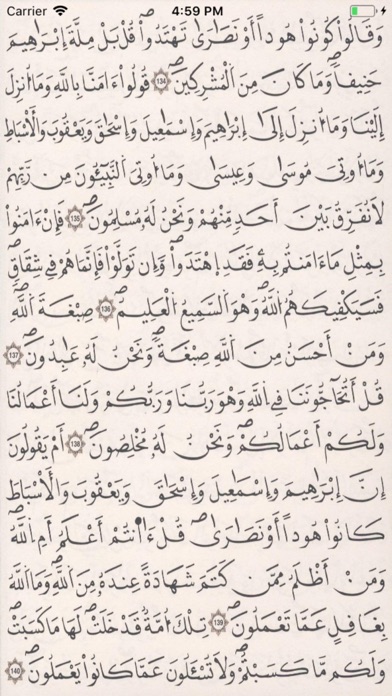 Carrier 4:59 PM
وَقَالُواْ كُونُواْ هُوداً اَوْ نَصَٰرَىٰ تَهْتَدُواْ قُلْ بَلْ مِلَّةَ إِبْرَٰهِيمَ
حَنِيفاً وَمَا كَانَ مِنَ اَلْمُشْرِكِينَ 134 قُولُواْ ءَامَنَّا بِاللَّهِ وَمَا أُنزِلَ
إِلَيْنَا وَمَا أُنزِلَ إِلَىٰ إِبْرَٰهِيمَ وَإِسْمَٰعِيلَ وَإِسْحَٰقَ وَيَعْقُوبَ وَالَاسْبَاطِ
وَمَا أُوتِيَ مُوسَىٰ وَعِيسَىٰ وَمَا أُوتِيَ اَلنَّبِيـُٔونَ مِن رَّبِّهِمْ
لَا نُفَرِّقُ بَيْنَ أَحَدٍ مِّنْهُمْ وَنَحْنُ لَهُ مُسْلِمُونَ 135 فَإِنَ ءَامَنُواْ
بِمِثْلِ مَا ءَامَنتُم بِهِ فَقَدِ اِهْتَدَواْ وَّإِن تَوَلَّوْاْ فَإِنَّمَا هُمْ فِي شِقَاقٍ
فَسَيَكْفِيكَهُمُ اُللَّهُ وَهُوَ اَلسَّمِيعُ اُلْعَلِيمُ 136 صِبْغَةَ اَللَّهِ
وَمَنَ اَحْسَنُ مِنَ اَللَّهِ صِبْغَةً وَنَحْنُ لَهُ عَٰبِدُونَ 137
قُلَ اَتُحَاجُّونَنَا فِي اِللَّهِ وَهُوَ رَبُّنَا وَرَبُّكُمْ وَلَنَا أَعْمَٰلُنَا
وَلَكُمُ أَعْمَٰلُكُمْ وَنَحْنُ لَهُ مُخْلِصُونَ 138 أَمْ يَقُولُونَ
إِنَّ إِبْرَٰهِيمَ وَإِسْمَٰعِيلَ وَإِسْحَٰقَ وَيَعْقُوبَ وَالَاسْبَاطَ
كَانُواْ هُوداً اَوْ نَصَٰرَىٰ قُلَ ءَآنتُمُ أَعْلَمُ أَمِ اِللَّهُ
وَمَنَ اَظْلَمُ مِمَّن كَتَمَ شَهَٰدَةً عِندَهُ مِنَ اَللَّهِ وَمَا اَللَّهُ
بِغَٰفِلٍ عَمَّا تَعْمَلُونَ 139 تِلْكَ أُمَّةٌ قَدْ خَلَتْ لَهَا مَا كَسَبَتْ
وَلَكُم مَّا كَسَبْتُمْ وَلَا تُسْـَٔلُونَ عَمَّا كَانُواْ يَعْمَلُونَ 140